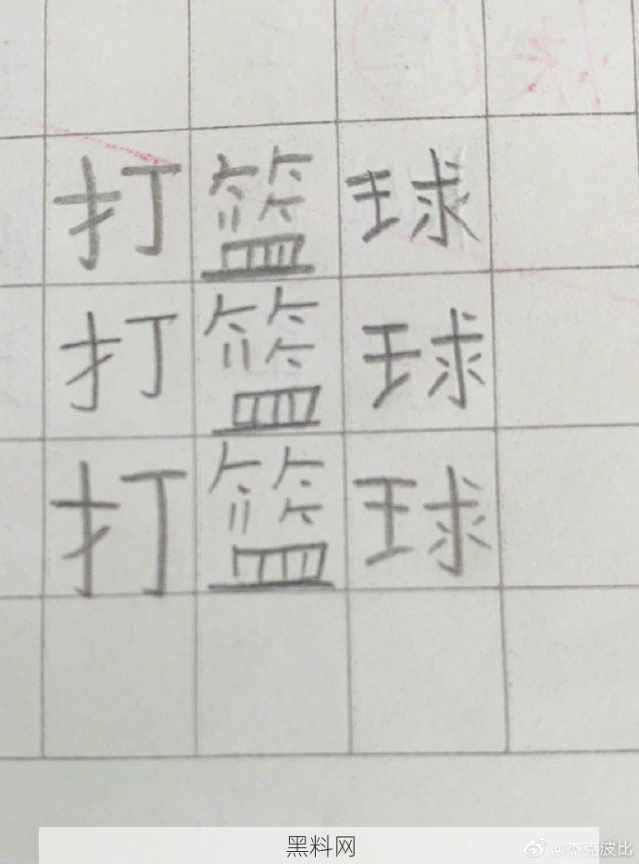 打篮球
打篮球
打篮球
黑料网